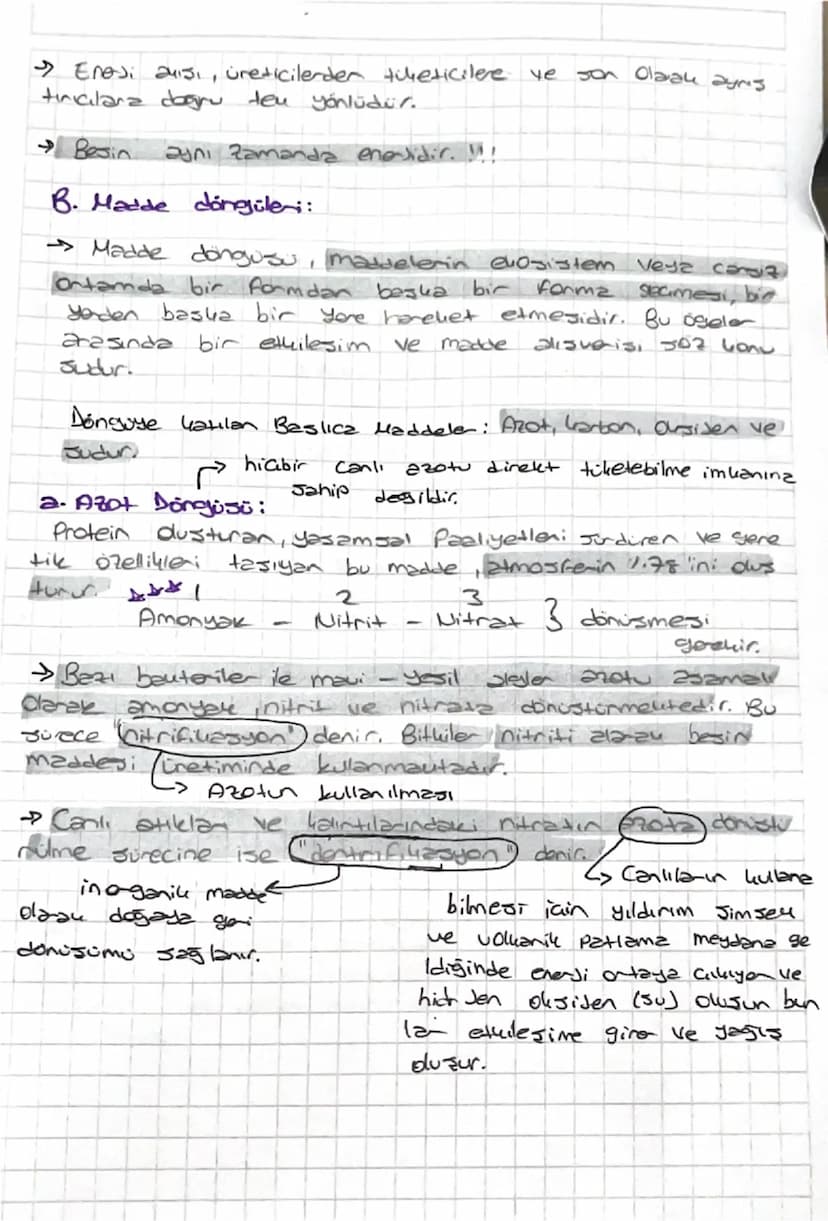 → Enerji akışı, üreticilerden tüketicilere ve son olarak ayrış
tırıcılara doğru tek yönlüdür.
→ Besin aynı zamanda enerjidir. !!!
B. Madde döngüleri:
→ Madde döngüsü, maddelerin ekosistem veya cansız
ortamda bir formdan başka bir forma geçmesi, bir
yerden başka bir yere hareket etmesidir. Bu ögeler
arasında bir etkileşim ve madde alışverişi söz konu
sudur.
Döngüye katılan Başlıca Maddeler: Azot, karbon, oksijen ve
sudur.
→ hiçbir canlı azotu direkt tüketebilme imkanına
sahip değildir.
a. Azot Döngüsü:
Protein oluşturan, yaşamsal faaliyetleri sürdüren ve gene
tik özellikleri taşıyan bu madde, atmosferin %78'ini oluş
turur. ☆☆☆ 1 2 3
Amonyak - Nitrit - Nitrat } dönüşmesi
gerekir.
→ Bazı bakteriler ile mavi - yeşil algler azotu aşamalı
olarak amonyak, nitrit ve nitrata dönüştürmektedir. Bu
sürece "nitrifikasyon" denir. Bitkiler nitriti alarak besin
maddesi üretiminde kullanmaktadır.
→ Azotun kullanılması
→ Canlı atıkları ve kalıntılarındaki nitratın azota dönüştü
rülme sürecine ise "dentrifikasyon" denir.
inorganik madde
olarak doğaya geri
dönüşümü sağlanır.
→ Canlıların kullana
bilmesi için yıldırım şimşek
ve volkanik patlama meydana ge
ldiğinde enerji ortaya çıkıyor ve
hidrojen oksijen (su) oluşun bun
lar etkileşime girer ve yağış
oluşur.